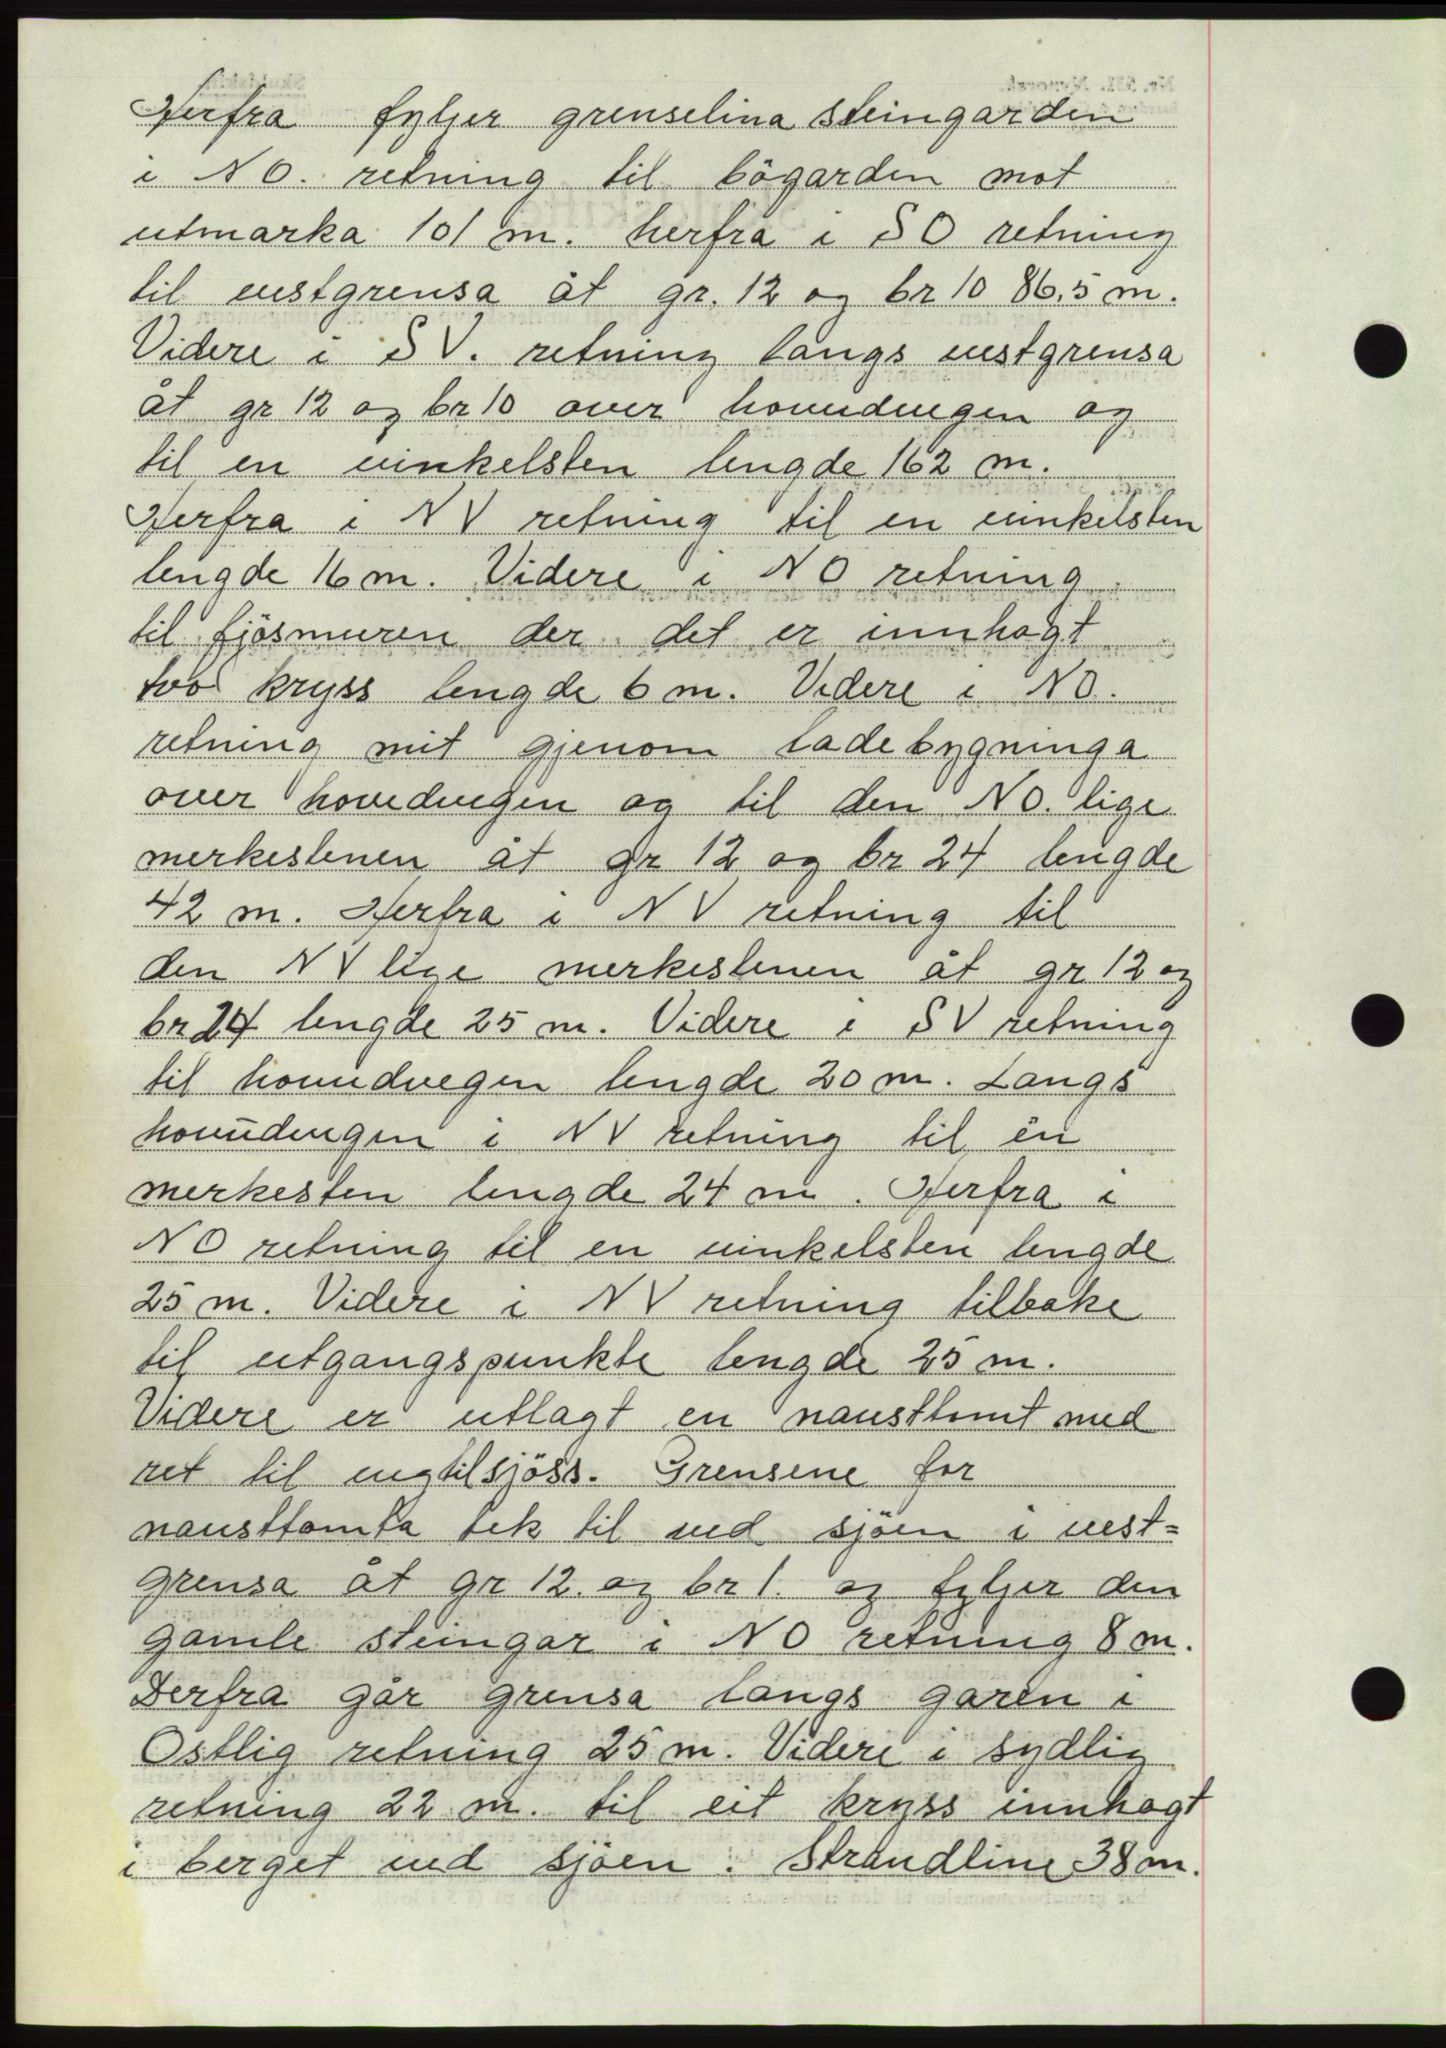 Herfra fyljer grenselina steingarden
i NO. retning til bögarden mot
utmarka 101 m. herfra i SO retning
til vestgrensa åt gr. 12 og br 10 86,5 m.
Videre i SV. retning langs vestgrensa
åt gr 12 og br 10 over hovudvegen og
til en vinkelsten lengde 162 m.
Herfra i NV retning til en vinkelsten
lengde 16 m. Videre i NO retning
til fjösmuren der det er innhogt
tvo kryss lengde 6 m. Videre i NO.
retning mit gjenom ladebygninga
over hovedvegen og til den NO. lige
merkestenen åt gr 12 og br 24 lengde
42 m. Herfra i NV retning til
den NV lige merkestenen åt gr 12 og
br 24 lengde 25 m. Videre i SV retning
til hovudvegen lengde 20 m. Langs
hovudvegen i NV retning til en
merkesten lengde 24 m. Herfra i
NO retning til en vinkelsten lengde
25 m. Videre i NV retning tilbake
til utgangspunkte lengde 25 m.
Videre er utlagt en nausttomt med
ret til vegtilsjöss. Grensene for
nausttomta tek til ved sjöen i vest=
grensa åt gr 12. og br 1. og fyljer den
gamle steingar i NO retning 8 m.
Derfra går grensa langs garen i
Ostlig retning 25 m. Videre i sydlig
retning 22 m. til eit kryss innhogt
i berget ved sjöen. Strandline 38 m.